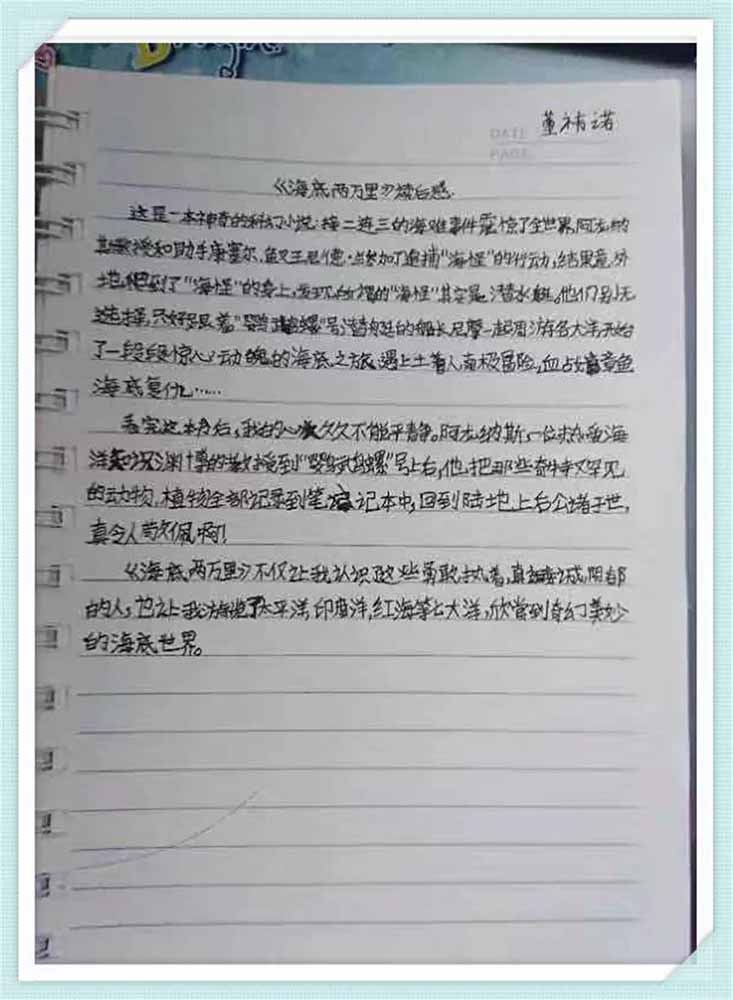 DATE 董祐诺
PAGE
《海底两万里》读后感
这是一本神奇的科幻小说:接二连三的海难事件震惊了全世界,阿龙纳
斯教授和助手康塞尔、鱼叉王尼德·兰参加了追捕“海怪”的行动,结果意外
地爬到了“海怪”的身上,发现所谓的“海怪”其实是潜水艇。他们别无
选择,只好跟着“鹦鹉螺”号潜艇的船长尼摩一起周游各大洋,开始
了一段段惊心动魄的海底之旅,遇上土著人,南极冒险,血战章鱼
海底复仇……
看完这本书后,我的心久久不能平静。阿龙纳斯,一位热爱海
洋知识渊博的教授到“鹦鹉螺”号上后,他把那些奇特又罕见
的动物,植物全部记录到笔记本中,回到陆地上后公诸于世,
真令人敬佩啊!
《海底两万里》不仅让我认识了这些勇敢,执着,真诚,
的人,也让我游览了太平洋,印度洋,红海等七大洋,欣赏到奇幻美妙
的海底世界。